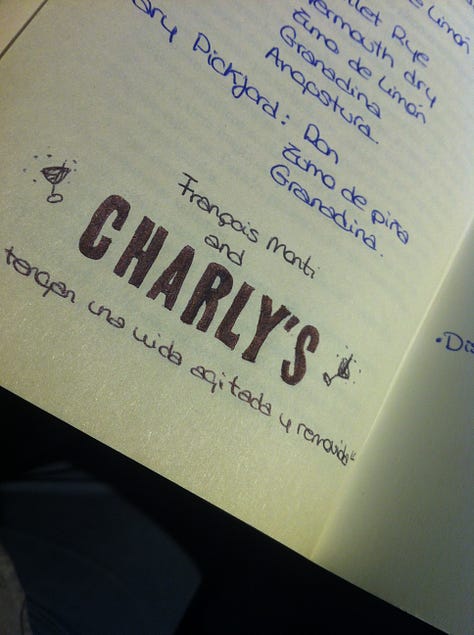 de limón
Rye
Vermouth dry
Zumo de limón
Granadina
Angostura.
Pickford: Ron
Zumo de piña
Granadina.
François Monti
and
CHARLY'S
tengan una vida agitada y removida"